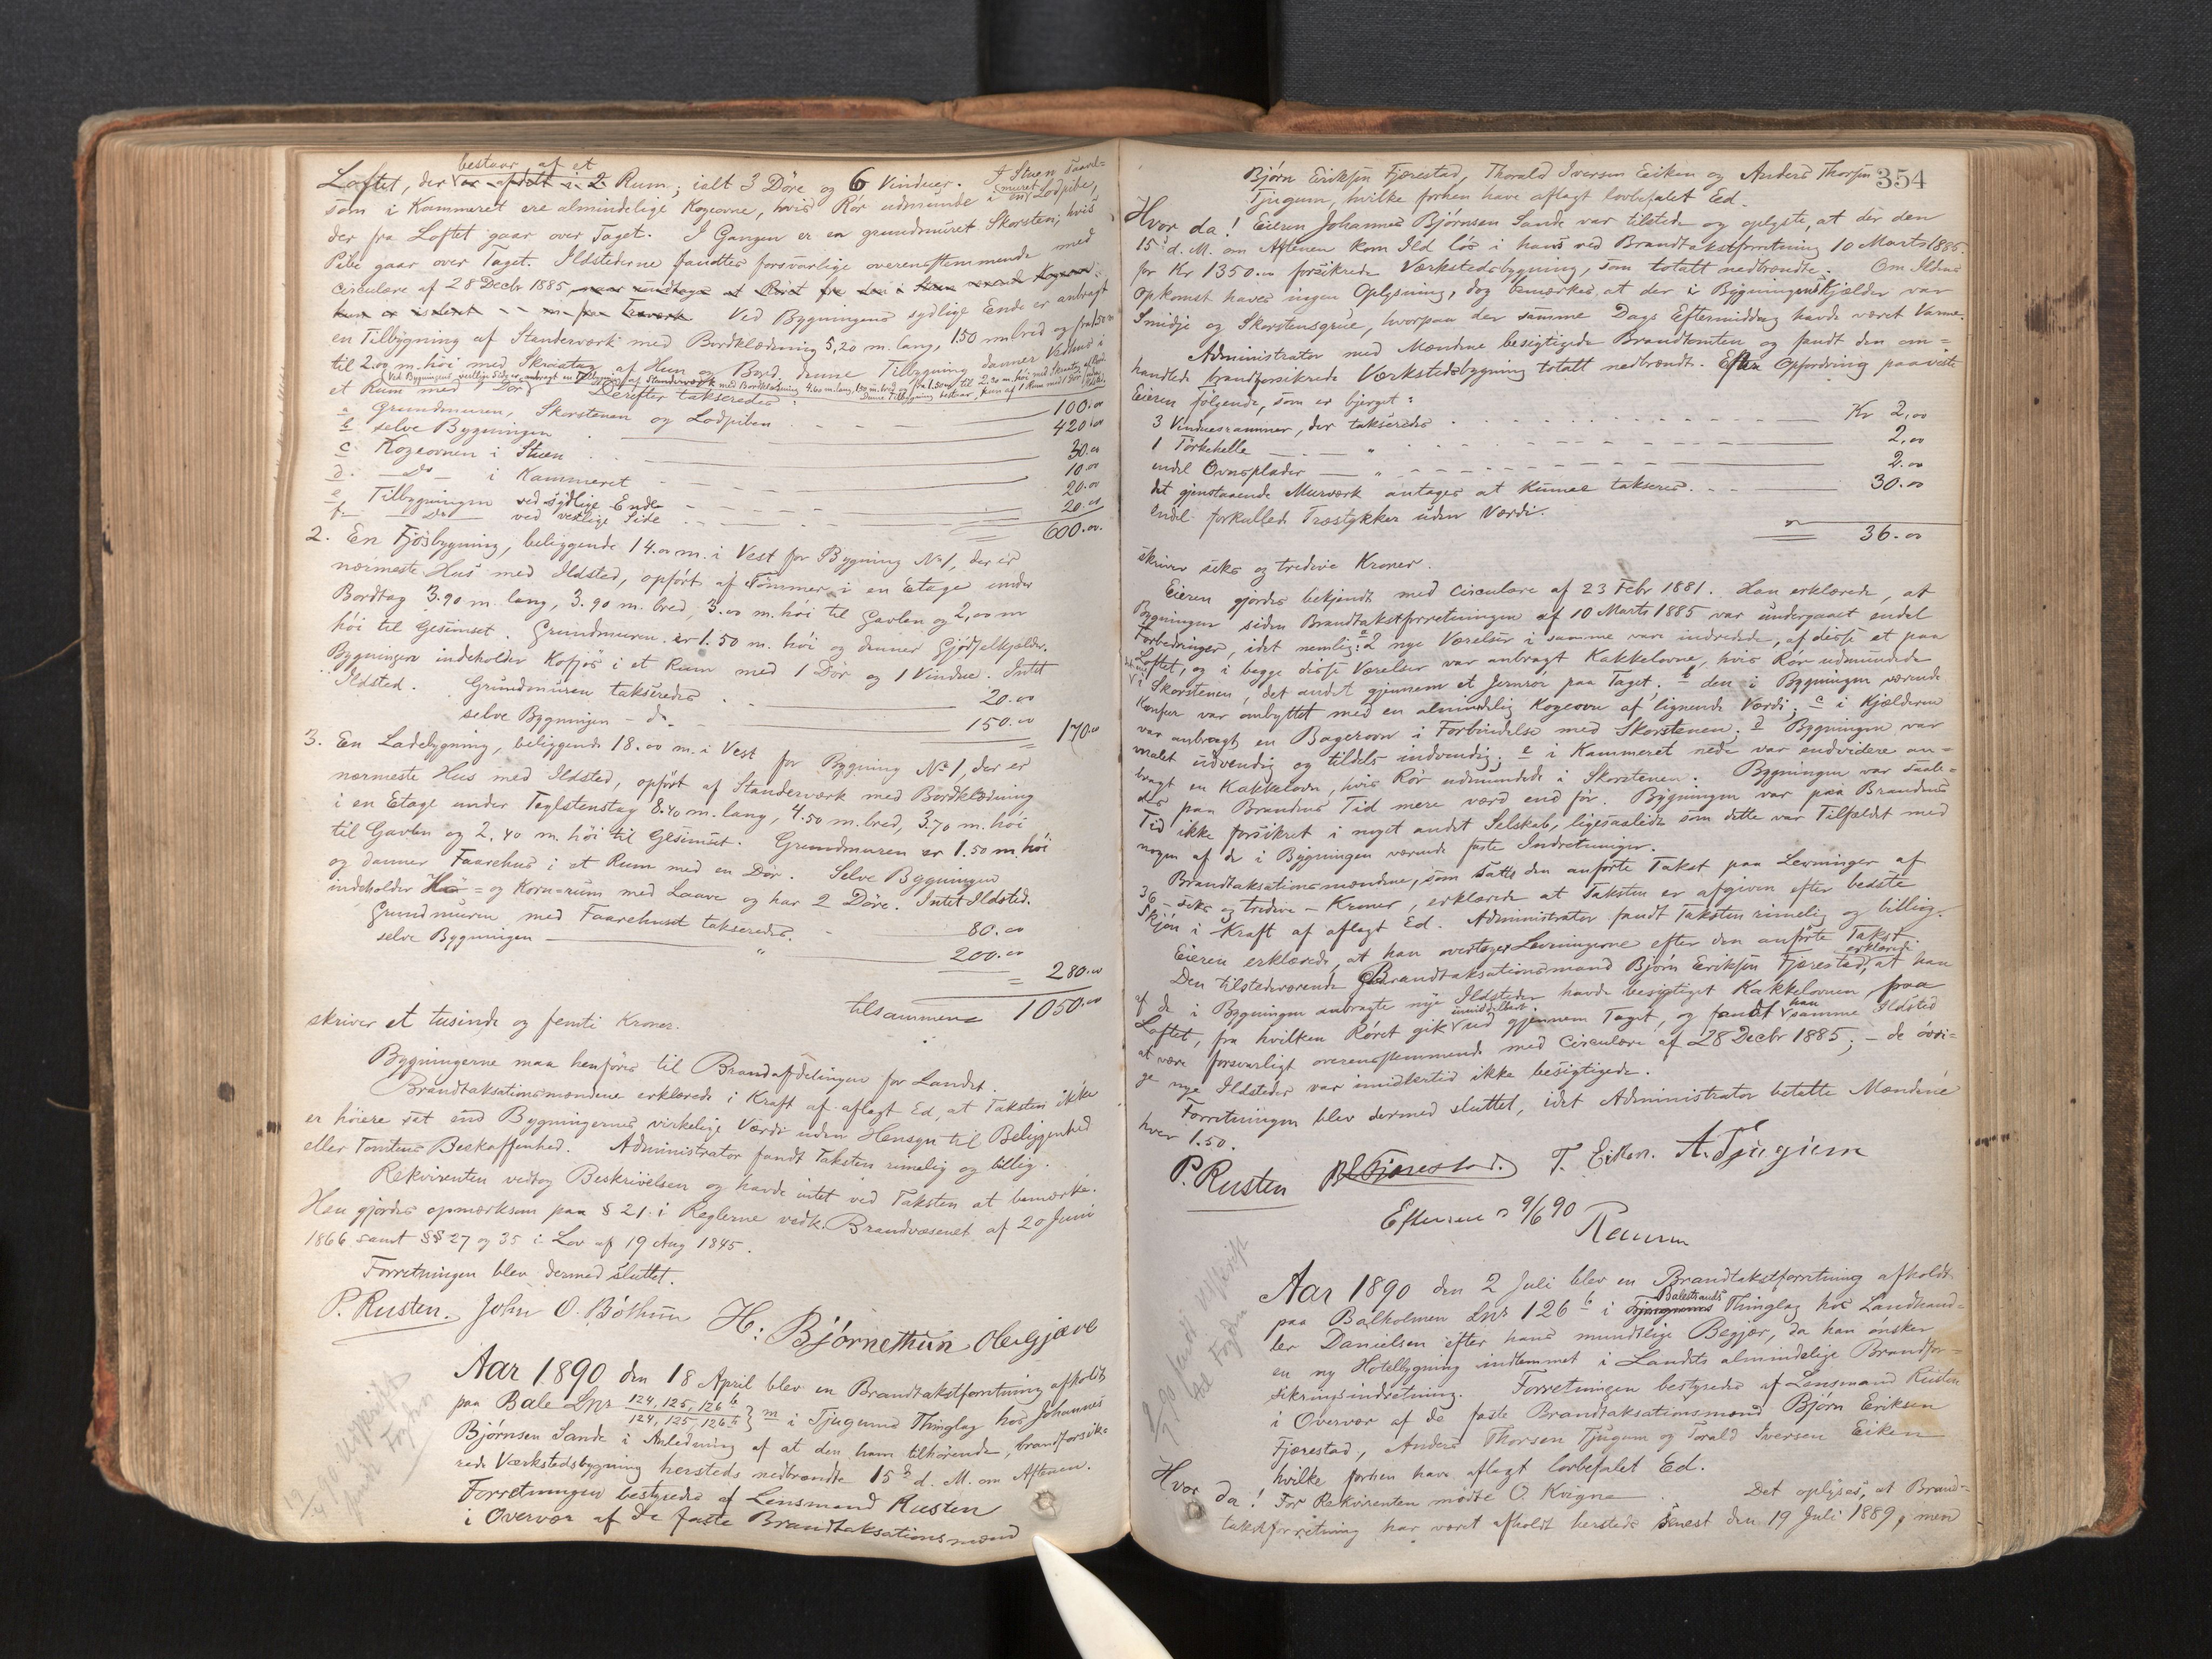 bestaar af et
Loftet, der var afdelt i 2 Rum; ialt 3 Döre og 6 Vinduer. I Stuen saavel=
som i Kammeret ere almindelige Kogeovne, hvis Rör udmunde i en muret Lodpibe,
der fra Loftet gaar over Taget. I Gangen er en grundmuret Skorsten, hvis
Pibe gaar over Taget. Ildstederne fandtes forsvarlige overensstemmende med
Circulære af 28 Decbr 1885
Ved Bygningens sydlige Ende er anbragt
en Tilbygning af Standerværk med Bordklædning 5,20 m. lang, 1.50 m bred og fra 1.50 m
til 2.00 m. höi med Skraatag af Hun og Bord, denne Tilbygning danner Vedhus i
(Ved Bygningens vestlige Side er anbragt en Tilbygning af Standerværk med Bordklædning 4.60 m. lang, 1.50 m. bred og fra 1.50 m til 2.20 m. höi med Skraatag
denne Tilbygning bestaar kun af 1 Rum med 1 Dör
et Rum med 1 Dör) Derefter takseredes:
a Grundmuren, Skorstenen og Lodpiben 100.00
b. selve Bygningen 420.00
c. Kogeovnen i Stuen 30.00
d. — Do — i Kammeret 10.00
e, Tilbygningen ved sydlige Ende 20.00
f — Do ved vestlige Side 20.00
600.00.
2. En Fjösbygning, beliggende 14.00 m. i Vest for Bygning No 1, der er
nærmeste Hus med Ildsted, opfört af Tömmer i en Etage under
Bordtag 3.90 m. lang, 3.90 m. bred, 3.00 m. höi til Gavlen og 2,00 m
höi til Gesimset. Grundmuren er 1.50 m. höi og danner Gjödselkjælder.
Bygningen indeholder Kofjös i et Rum med 1 Dör og 1 Vindue. Intet
Ildsted. Grundmuren takseredes 20.00
selve Bygningen - do. 150.00 170.00
3. En Ladebygning, beliggende 18.00 m. i Vest for Bygning No 1, der er
nærmeste Hus med Ildsted, opfört af Standerværk med Bordklædning
i en Etage under Taglstenstag 8.40 m. lang, 4.50 m. bred, 3.70 m. höi
til Gavlen og 2.40 m. höi til Gesimset. Grundmuren er 1.50 m. höi
og danner Faarehus i et Rum med en Dör. Selve Bygningen
indeholder Hö= og Korn=rum med Laave og har 2 Döre. Intet Ildsted.
Grundmuren med Faarehuset takseredes. 80.00
selve Bygningen — " — 200.00
280.00
tilsammen 1050.00
skriver et tusinde og femti Kroner.
Bygningerne maa henföres til Brandafdelingen for Landet.
Brandtaksationsmændene erklærede i Kraft af aflagt Ed, at Taksten ikke
er höiere sat end Bygningernes virkelige Værdi uden Hensyn til Beliggenhed
eller Tomtens Beskaffenhed. Administrator fandt Taksten rimelig og billig.
Rekvirenten vedtog Beskrivelsen og havde intet ved Taksten at bemærke.
Han gjordes opmærksom paa § 21. i Reglerne vedk. Brandvæsenet af 20 Juni
1866 samt §§ 27 og 35 i Lov af 19 Aug 1845.
Forretningen blev dermed sluttet.
P. Rusten. John O. Böthun H. Björnethun Ole Gjære
Aar 1890 den 18 April blev en Brandtakstforretning afholdt
paa Bale Lnr 124, 125, 126 b / 124, 125, 126 b } m i Tjugums Thinglag hos Johannes
Björnsen Sande i Anledning af at den ham tilhörende, brandforsik=
rede Værkstedsbygning hersteds nedbrændte 15de d. M. om Aftenen.
Forretningen bestyredes af Lensmand Rusten
i Overvær af de faste Brandtaksationsmænd
19/4 90 Udskrift
sendt Fogden
354
Björn Eriksen Fjærestad, Thorald Iversen Eiken og Anders Thorsen
Tjugum, hvilke forhen have aflagt lovbefalet Ed.
Hvor da! Eieren Johannes Björnsen Sande var tilstede og oplyste, at der den
15 d. M. om Aftenen kom Ild lös i hans ved Brandtakstforretning 10 Marts 1885
for Kr 1350.00 forsikrede Værkstedsbygning, som totalt nedbrændte. Om Ildens
Opkomst haves ingen Oplysning, dog bemærkes at der i Bygningens Kjælder var
Smidje og Skorstensgrue, hvorpaa der samme Dags Eftermiddag havde været Varme.
Administrator med Mændene besigtigede Brandtomten og fandt den om=
handlede brandforsikrede Værkstedsbygning totalt nedbrændt. Efter Opfordring paaviste
Eieren fölgende, som er bjerget:
3 Vinduesrammer, der takseredes Kr 2,00
1 Törkehelle — " 2.00
endel Ovnsplader — " 2.00
det gjenstaaende Murværk antages at kunne takseres. 30.00
endel forkullede Træstykker uden Værdi.
36.00
skriver seks og tredive Kroner.
Eieren gjordes bekjendt med Circulære af 23 Febr 1881. Han erklærede, at
Bygningen siden Brandtakstforretningen af 10 Marts 1885 var undergaaet endel
Forbedringer, idet nemlig: a 2 nye Værelser i samme vare indredede, af disse et paa
Loftet, og i begge disse Værelser var anbragt Kakkelovne, hvis Rör udmundede
i Skorstenen, det andet gjennem et Jernrör paa Taget; b den i Bygningen værende
Komfur var ombyttet med en almindelig Kogeovn af lignende Værdi; c i Kjælderen
var anbragt en Bagerovn i Forbindelse med Skorstenen; d Bygningen var
malet udvendig og tildels indvendig; e i Kammeret nede var endvidere an=
bragt en Kakkelovn, hvis Rör udmundede i Skorstenen. Bygningen var saale=
des paa Brandens Tid mere værd end för. Bygningen var paa Brandens
Tid ikke forsikret i noget andet Selskab, ligesaalidt som dette var Tilfældet med
nogen af de i Bygningen værende faste Indretninger.
Brandtaksationsmændene, som satte den anförte Takst paa Levninger af
36 - seks og tredive - Kroner, erklærede at Taksten er afgiven efter bedste
Skjön i Kraft af aflagt Ed. Administrator fandt Taksten rimelig og billig.
Eieren erklærede, at han overtager Levningerne efter den anförte Takst.
Den tilstedeværende Brandtaksationsmand Björn Eriksen Fjærestad, erklærede at han
af de i Bygningen anbragte nye Ildsteder havde besigtiget Kakkelovnen paa
Loftet, fra hvilken Röret gik umiddelbart ud gjennem Taget, og fandt han samme Ildsted
at være forsvarligt overensstemmende med Circulære af 28 Decbr 1885; - de övri=
ge nye Ildsteder var imidlertid ikke besigtigede.
Forretningen blev dermed sluttet, idet Administrator betalte Mændene
hver 1.50.
P. Rusten B E Fjærestad. T. Eiken. A. Tjugum
9/6 90
Aar 1890 den 2 Juli blev en Brandtakstforretning afholdt
paa Balholmen Lnr 126 b i Tjugums Balestrands Thinglag hos Landhand=
ler Danielsen efter hans mundtlige Begjær, da han önsker
en ny Hotelbygning indlemmet i Landets almindelige Brandfor=
sikringsindretning. Forretningen bestyredes af Lensmand Rusten
i Overvær af de faste Brandtaksationsmænd Björn Eriksen
Fjærestad, Anders Thorsen Tjugum og Torald Iversen Eiken
hvilke forhen have aflagt lovbefalet Ed.
Hvor da! For Rekvirenten mödte O. Kvigne. Det oplyses, at Brand=
takstforretning har været afholdt hersteds senest den 19 Juli 1889, men
90 sendt Udskrift
til Fogden